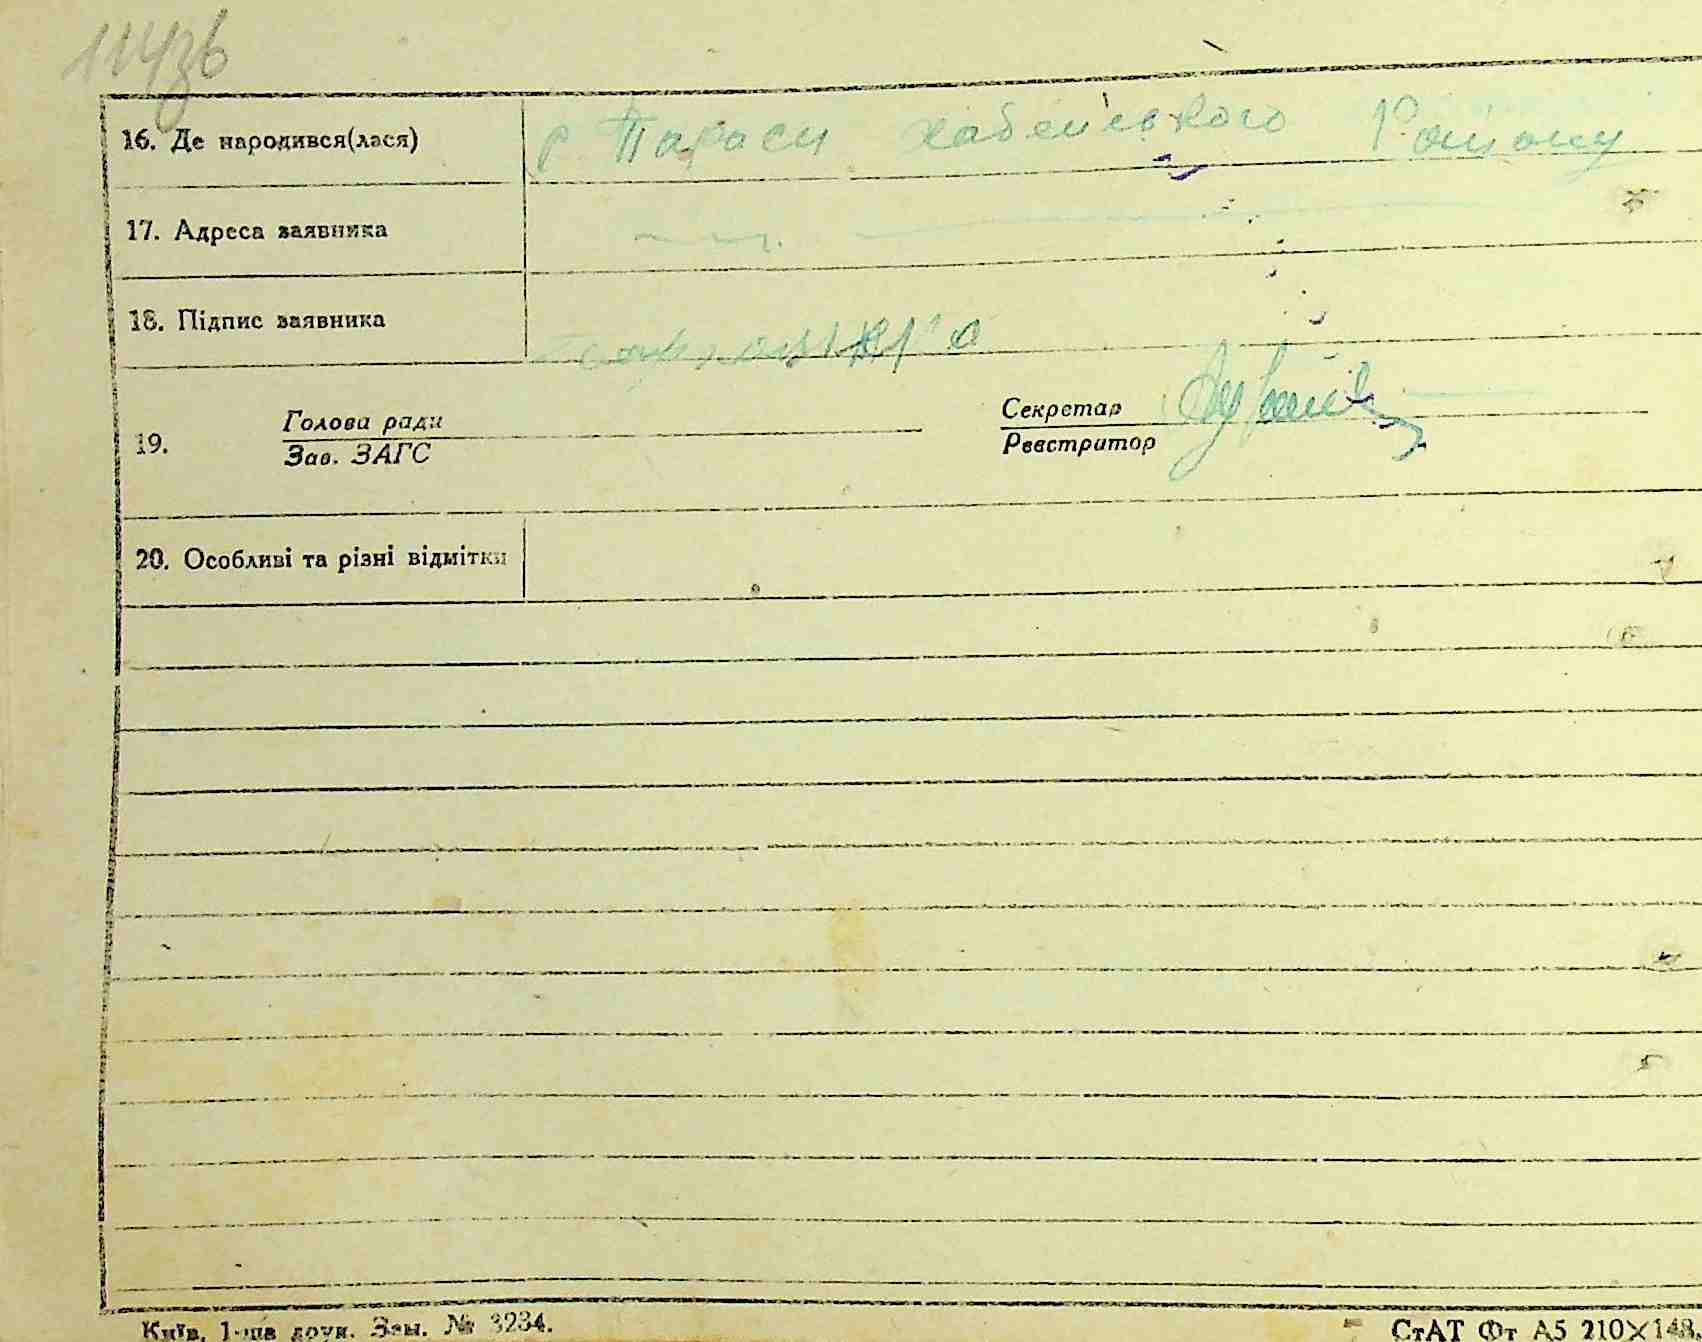 114зв
16. Де народився(лася) с Тараси хабенського Району
17. Адреса заявника
18. Підпис заявника
19. Голова ради
Зав. ЗАГС
Секретар
Реєстратор
20. Особливі та різні відмітки
Київ, 1-ша друк. Зам. № 3234.
СтАТ Фт А5 210×148.